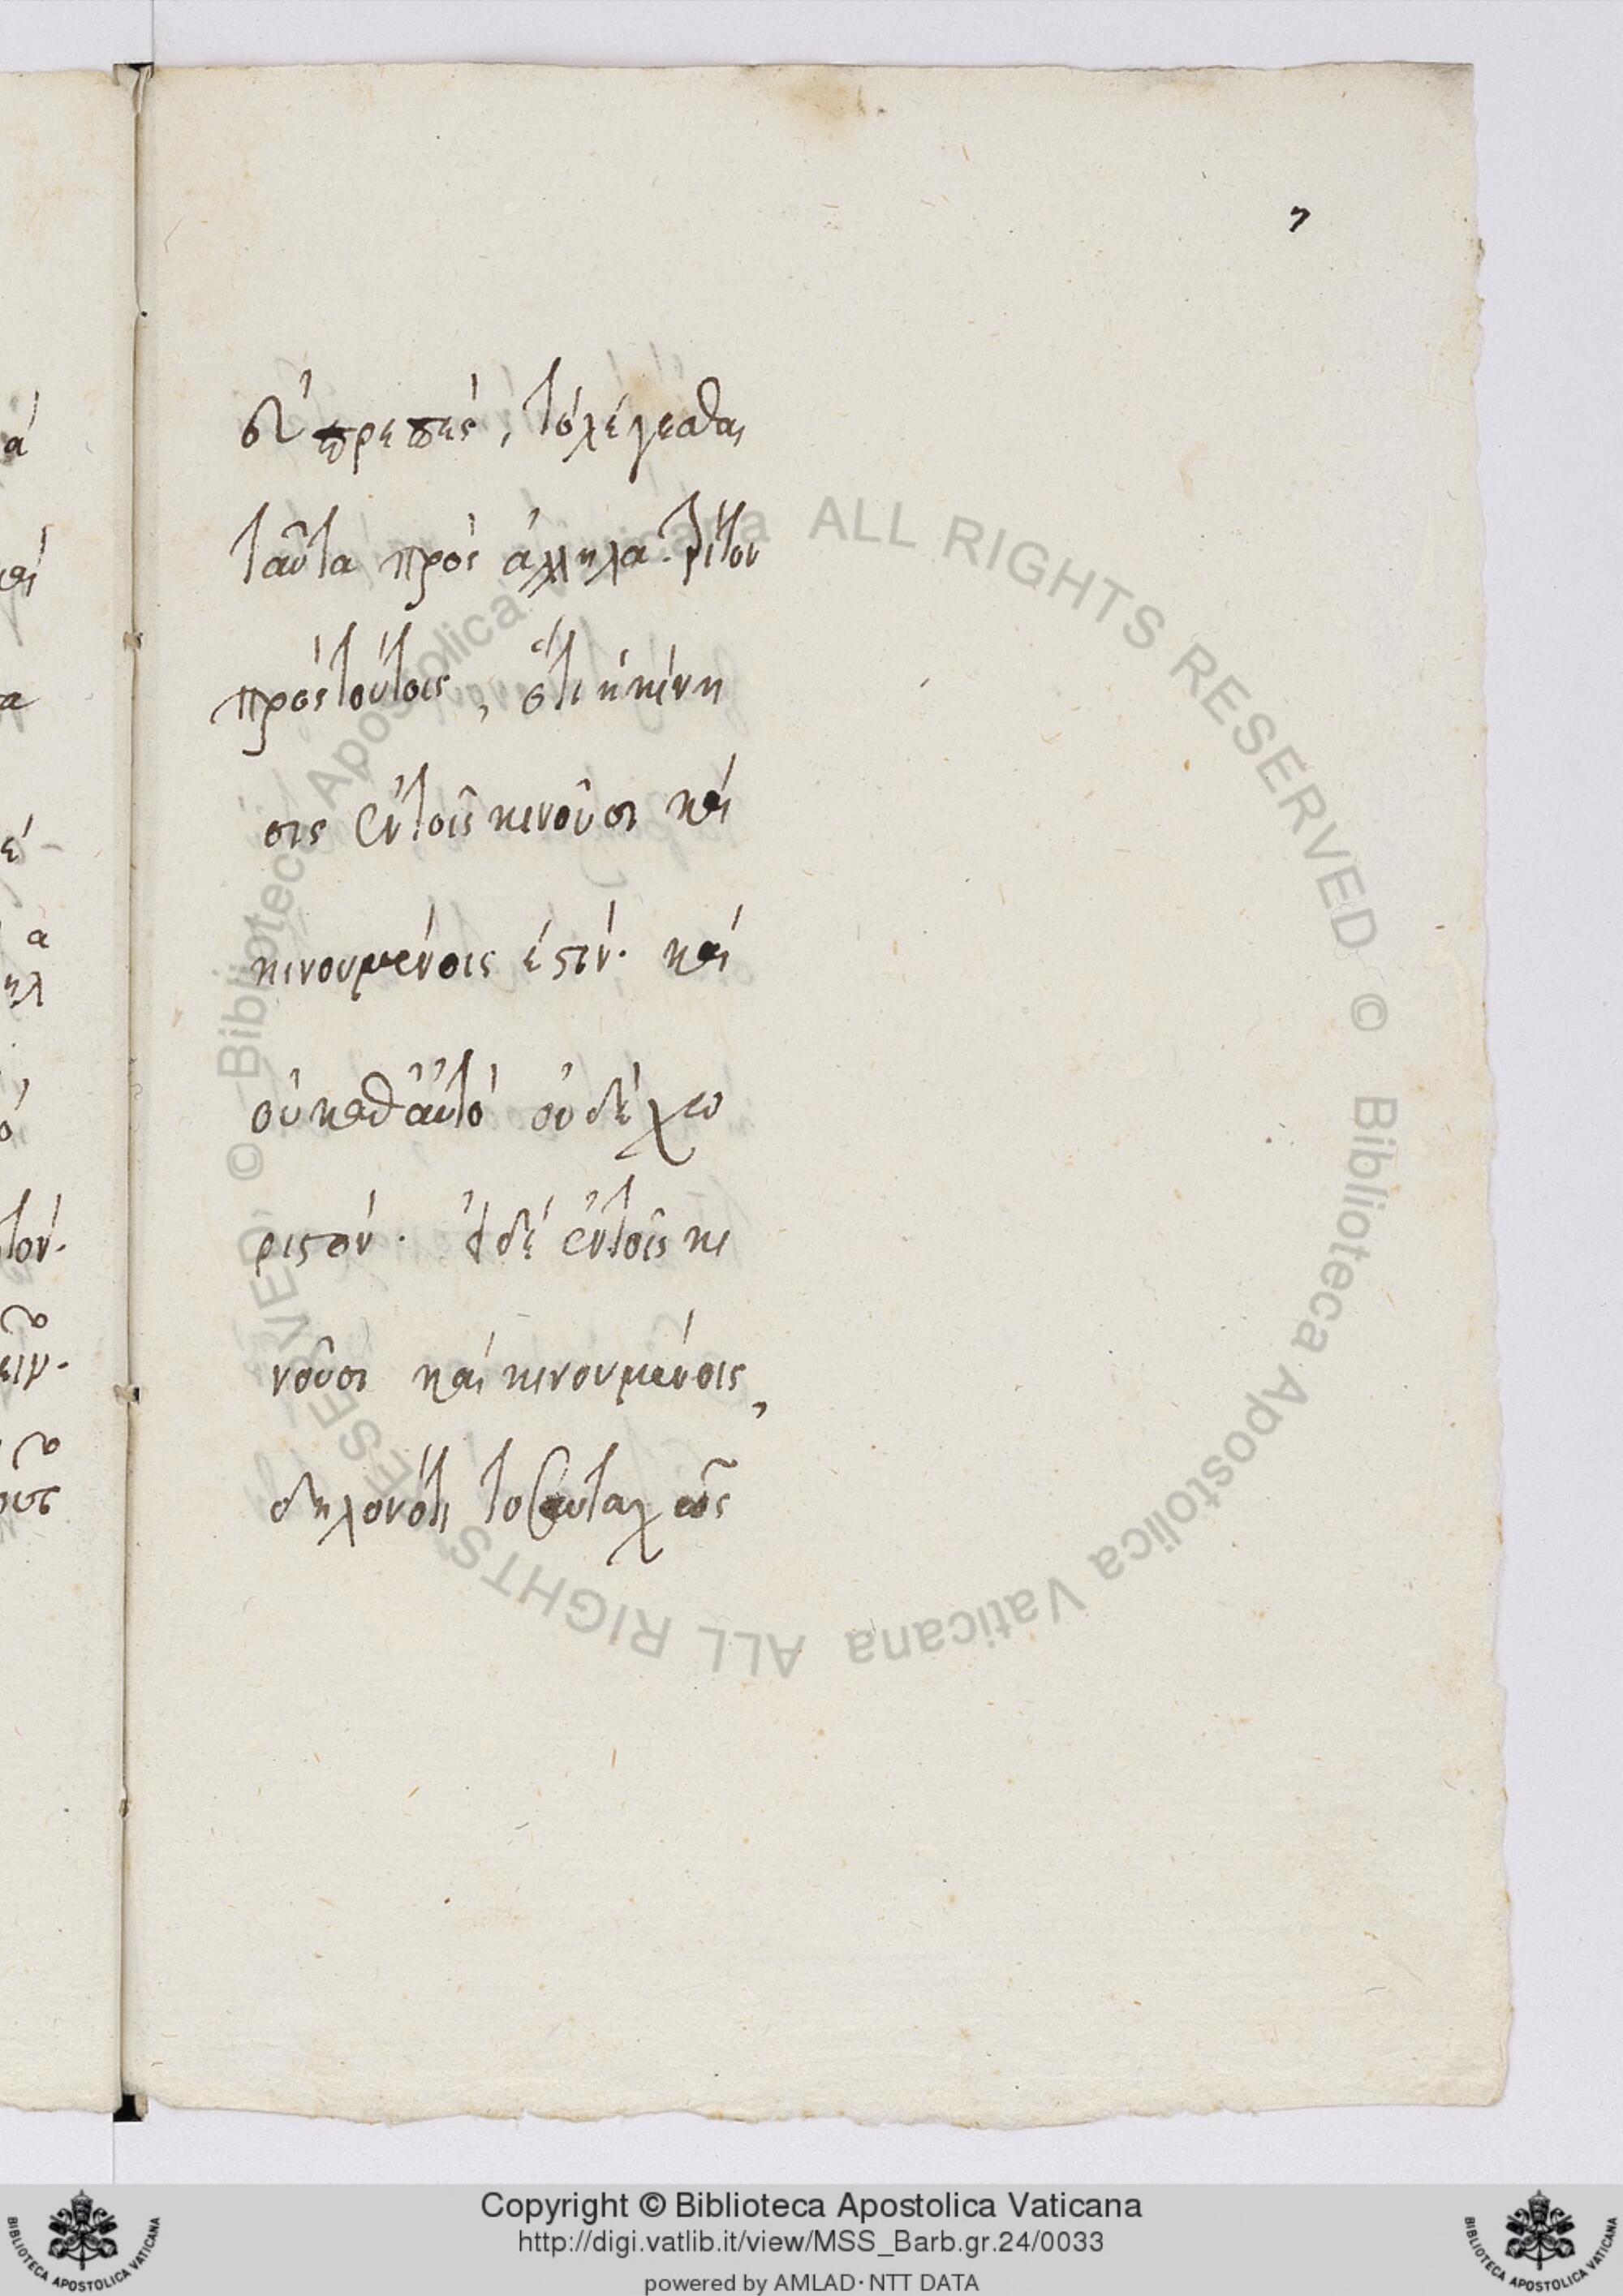 7
δ' πρεπές, τὸ λέγεσθαι
ταῦτα πρὸς ἄλληλα.
πρὸς τούτοις, ὅτι ἡ κίνη
σις ἐν τοῖς κινοῦσι καὶ
κινουμένοις ἐστίν. καὶ
οὐ καθ' αὑτό οὐδὲ χω
ριστόν. εἰ δὲ ἐν τοῖς κι
νοῦσι καὶ κινουμένοις,
δηλονότι τοσαυταχῶς
ά
α
έ
α
ηλ
ό
τον.
ειν.
ALL RIGHTS RESERVED © Biblioteca Apostolica Vaticana ALL RIGHTS RESERVED © Biblioteca Apostolica Vaticana
Copyright © Biblioteca Apostolica Vaticana
http://digi.vatlib.it/view/MSS_Barb.gr.24/0033
powered by AMLAD·NTT DATA
BIBLIOTECA APOSTOLICA VATICANA
BIBLIOTECA APOSTOLICA VATICANA